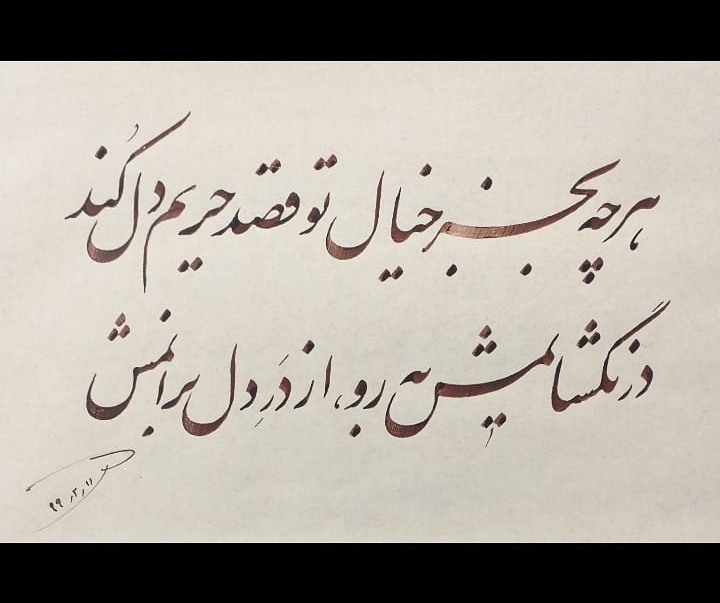 هرچه بجز خیال تو قصد حریم دل کُند
در نگشایمش به رو، از دَرِ دل برانمش
۹۹٫۲٫۱۱